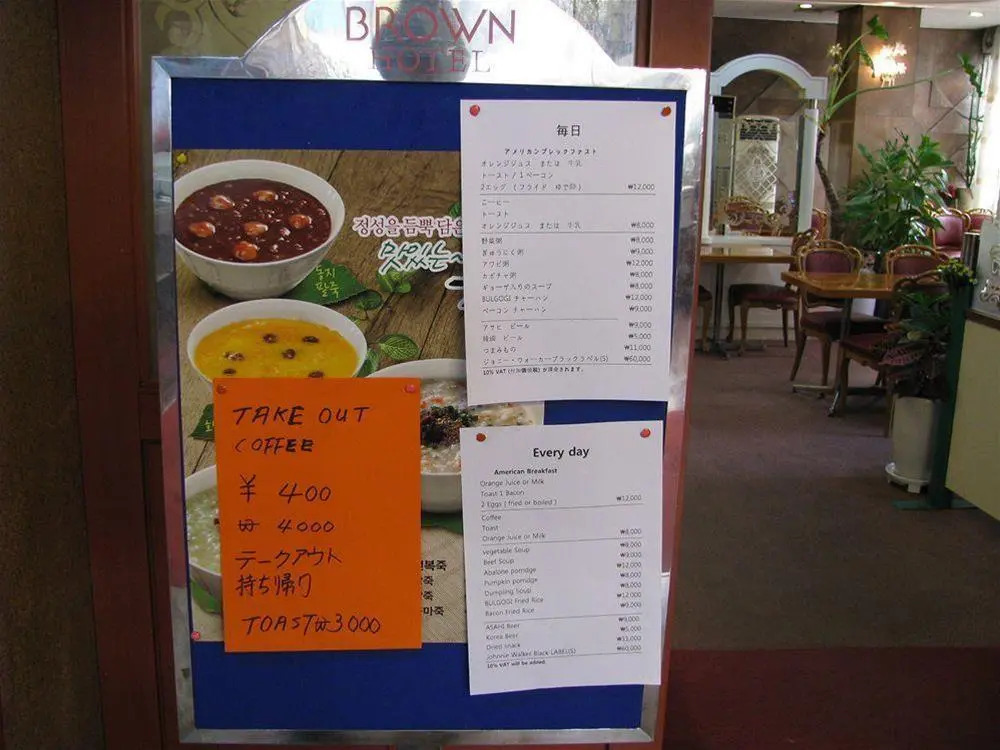 BROWN
HOTEL
정성을 듬뿍 담은
맛있는~
동지
팥죽
毎日
アメリカンブレックファスト
オレンジジュス または 牛乳
トースト / 1 ベーコン
2エッグ ( フライド ゆで卵 ) ₩12,000
コーヒー
トースト
オレンジジュス または 牛乳 ₩8,000
野菜粥 ₩8,000
ぎゅうにく粥 ₩9,000
アワビ粥 ₩12,000
カボチャ粥 ₩8,000
ギョーザ入りのスープ ₩8,000
BULGOGI チャーハン ₩12,000
ベーコン チャーハン ₩9,000
アサヒ ビール ₩9,000
韓国 ビール ₩5,000
つまみもの ₩11,000
ジョニー・ウォーカーブラックラベル(S) ₩60,000
10% VAT (付加価値税) が
TAKE OUT
COFFEE
¥ 400
₩ 4000
テークアウト
持ち帰り
TOAST ₩3,000
Every day
American Breakfast
Orange Juice or Milk
Toast 1 Bacon
2 Eggs ( fried or boiled ) ₩12,000
Coffee
Toast
Orange Juice or Milk ₩8,000
vegetable Soup ₩8,000
Beef Soup ₩9,000
Abalone porridge ₩12,000
Pumpkin porridge ₩8,000
Dumpling Soup ₩8,000
BULGOGI Fried Rice ₩12,000
Bacon Fried Rice ₩9,000
ASAHI Beer ₩9,000
Korea Beer ₩5,000
Dried snack ₩11,000
Johnnie Walker Black LABEL(S) ₩60,000
10% VAT will be added.
복죽
죽
죽
마죽